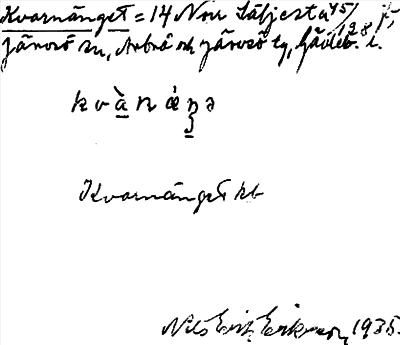 Kvarnänget = 14 Norr Säljesta 45/128
Järvsö sn, Arbrå och Järvsö tg, Gävleb. l.
kvànǽŋə
Kvarnänget kb
Nils Erik Eriksson, 1935.